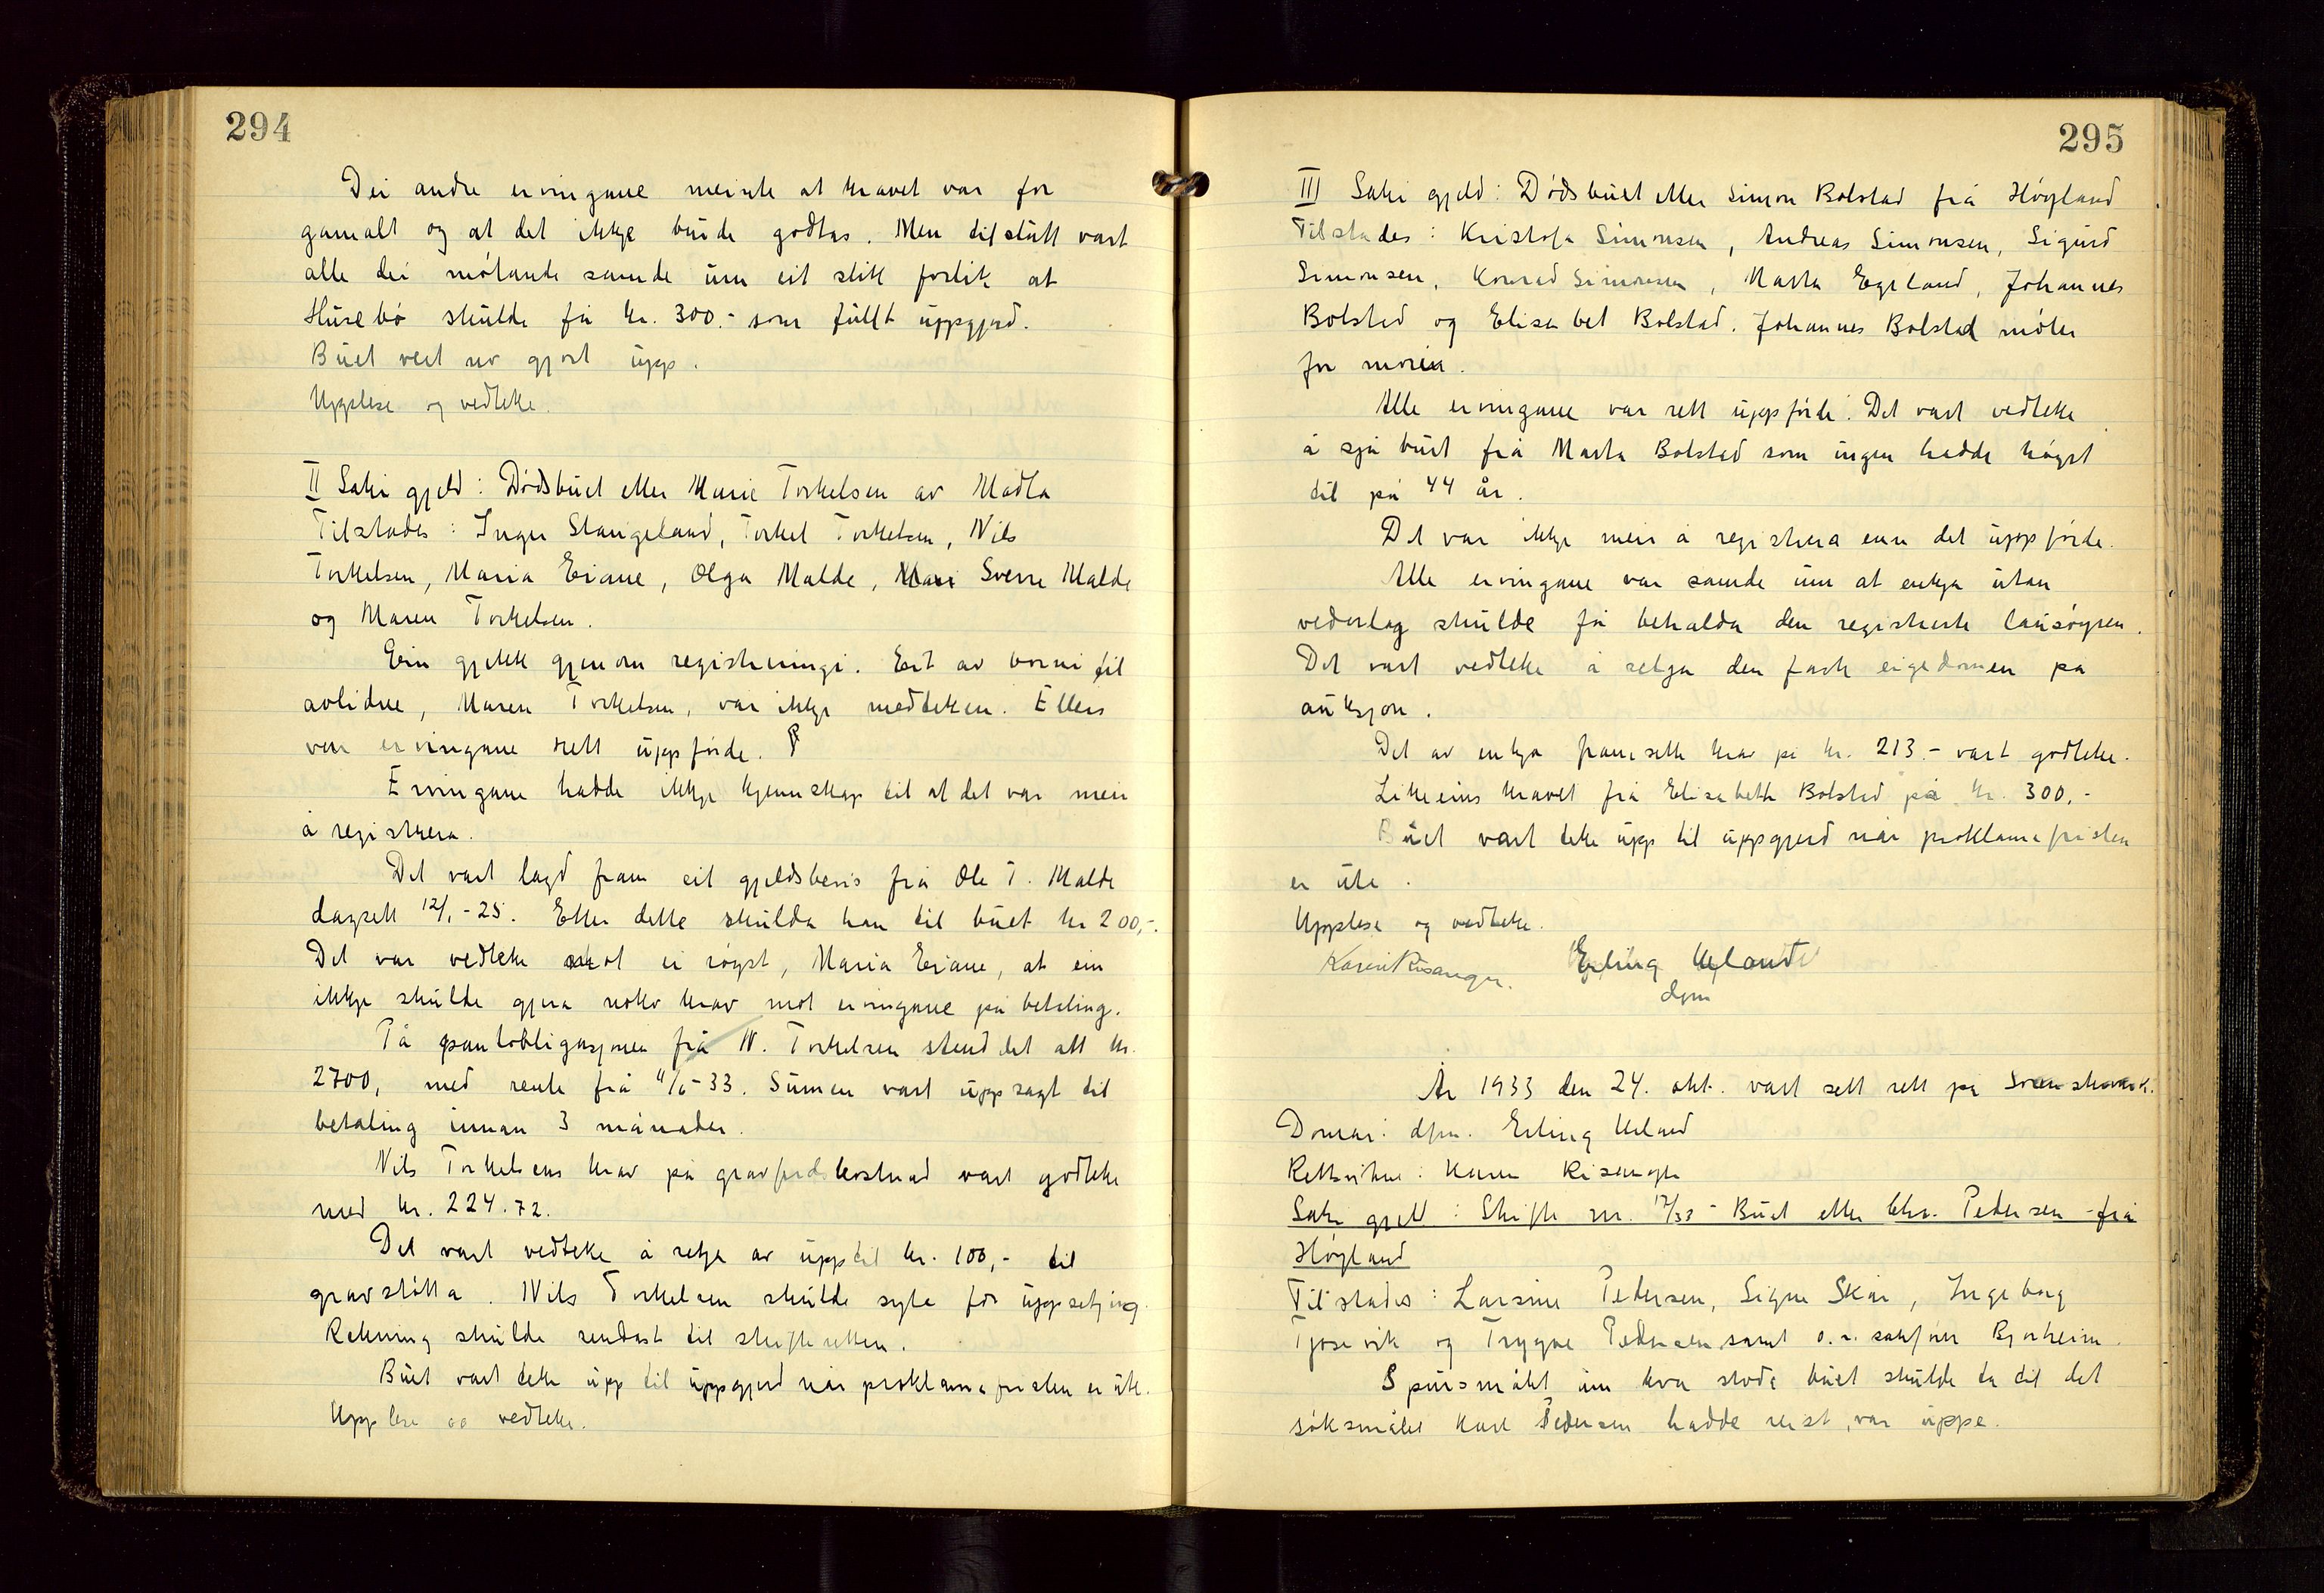 294
Dei andre ervingane meinte at kravet var for
gamalt og at det ikkje burde godtas. Men til slutt vart
alle dei møtande samde um eit slikt forlik at
Husebø skulde få kr. 300.- som fullt uppgjerd.
Buet vert no gjort upp.
Upplese og vedteke.
II Saki gjeld: Dødsbuet etter Marie Torkelsen av Madla
Tilstades: Inger Stangeland, Torkel Torkelsen, Nils
Torkelsen, Maria Eriane, Olga Malde, Sverre Malde
og Maren Torkelsen.
Ein gjekk gjenom registreringi. Eit av borni til
avlidne, Maren Torkelsen, var ikkje medteken. Ellers
var ervingane rett uppførde.
Ervingane hadde ikkje kjennskap til at det var meir
å registrera.
Det vart lagd fram eit gjeldsbevis frå Ole T. Malde
dagsett 12/1-25. Etter dette skulda han til buet kr 200,-.
Det var vedteke mot ei røyst, Maria Eriane, at ein
ikkje skulde gjera noko krav mot ervingane på betaling.
På pantobligasjonen frå N. Torkelsen stend det att kr.
2700, med rente frå 11/6-33. Sumen vart uppsagt til
betaling innan 3 månader.
Nils Torkelsens krav på gravferdskostnad vart godteke
med kr. 224.72.
Det vart vedteke å setja av upptil kr. 100,- til
gravstøtta. Nils Torkelsen skulde syta for uppsetjing.
Rekning skulde sendast til skifteretten.
Buet vart teke upp til uppgjerd når proklamafristen er ute.
Upplese og vedteke.
295
III Saki gjeld: Dødsbuet etter Simon Bolstad frå Høyland
Tilstades: Kristofa Simonsen, Andreas Simonsen, Sigurd
Simonsen, Konrad Simonsen, Marta Egeland, Johannes
Bolstad og Elisabet Bolstad. Johannes Bolstad møter
for mora.
Alle ervingane var rett uppførde. Det vart vedteke
å sjå burt frå Marta Bolstad som ingen hadde høyrt
til på 44 år.
Det var ikkje meir å registrera enn det uppførde.
Alle ervingane var samde um at enkja utan
vederlag skulde få behalda den registrerte lausøyren.
Det vart vedteke å selja den faste eigedomen på
auksjon.
Det av enkja framsette krav på kr. 213.- vart godteke.
Likeeins kravet frå Elisabeth Bolstad på kr. 300,-
Buet vart teke upp til uppgjerd når proklamafristen
er ute.
Upplese og vedteke.
Karen Risanger. Erling Ueland
dfm
År 1933 den 24. okt. vart sett rett på
Domar: dfm. Erling Ueland
Rettsvitne: Karen Risanger
Saki gjeld: Skifte nr. 17/33 - Buet etter Chr. Pedersen - frå
Høyland
Tilstades: Larsine Pedersen, Signe Skår, Ingeborg
Tjosevik og Trygve Pedersen samt o.r. sakførar Bjorheim.
Spursmålet um kva stode buet skulde ta til det
søksmålet Karl Pedersen hadde reist, var uppe.